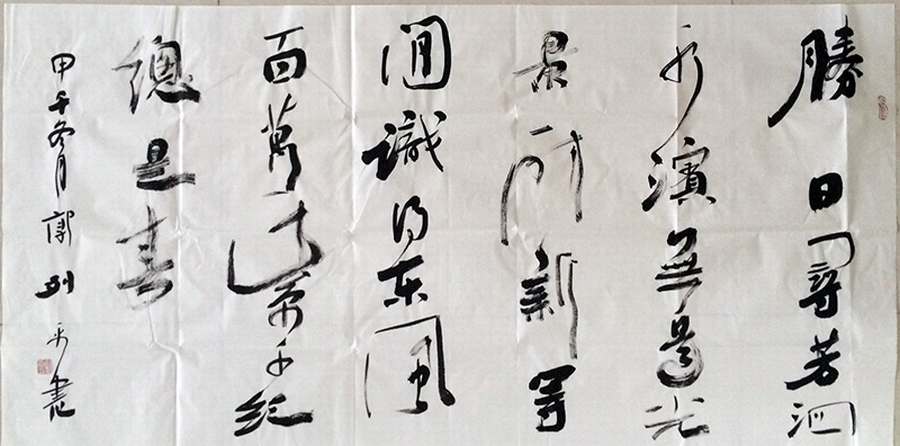 勝日尋芳泗
水濱無邊光
景一時新等
閒識得東風
面萬紫千紅
總是春
甲午冬月郭列平書